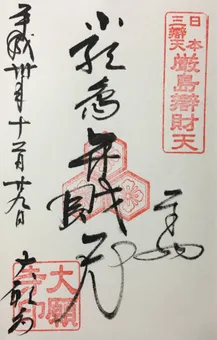 日本
三辯天
厳島辯財天
厳島弁財天
平成卅年十一月廿九日
大願寺
大願
寺印